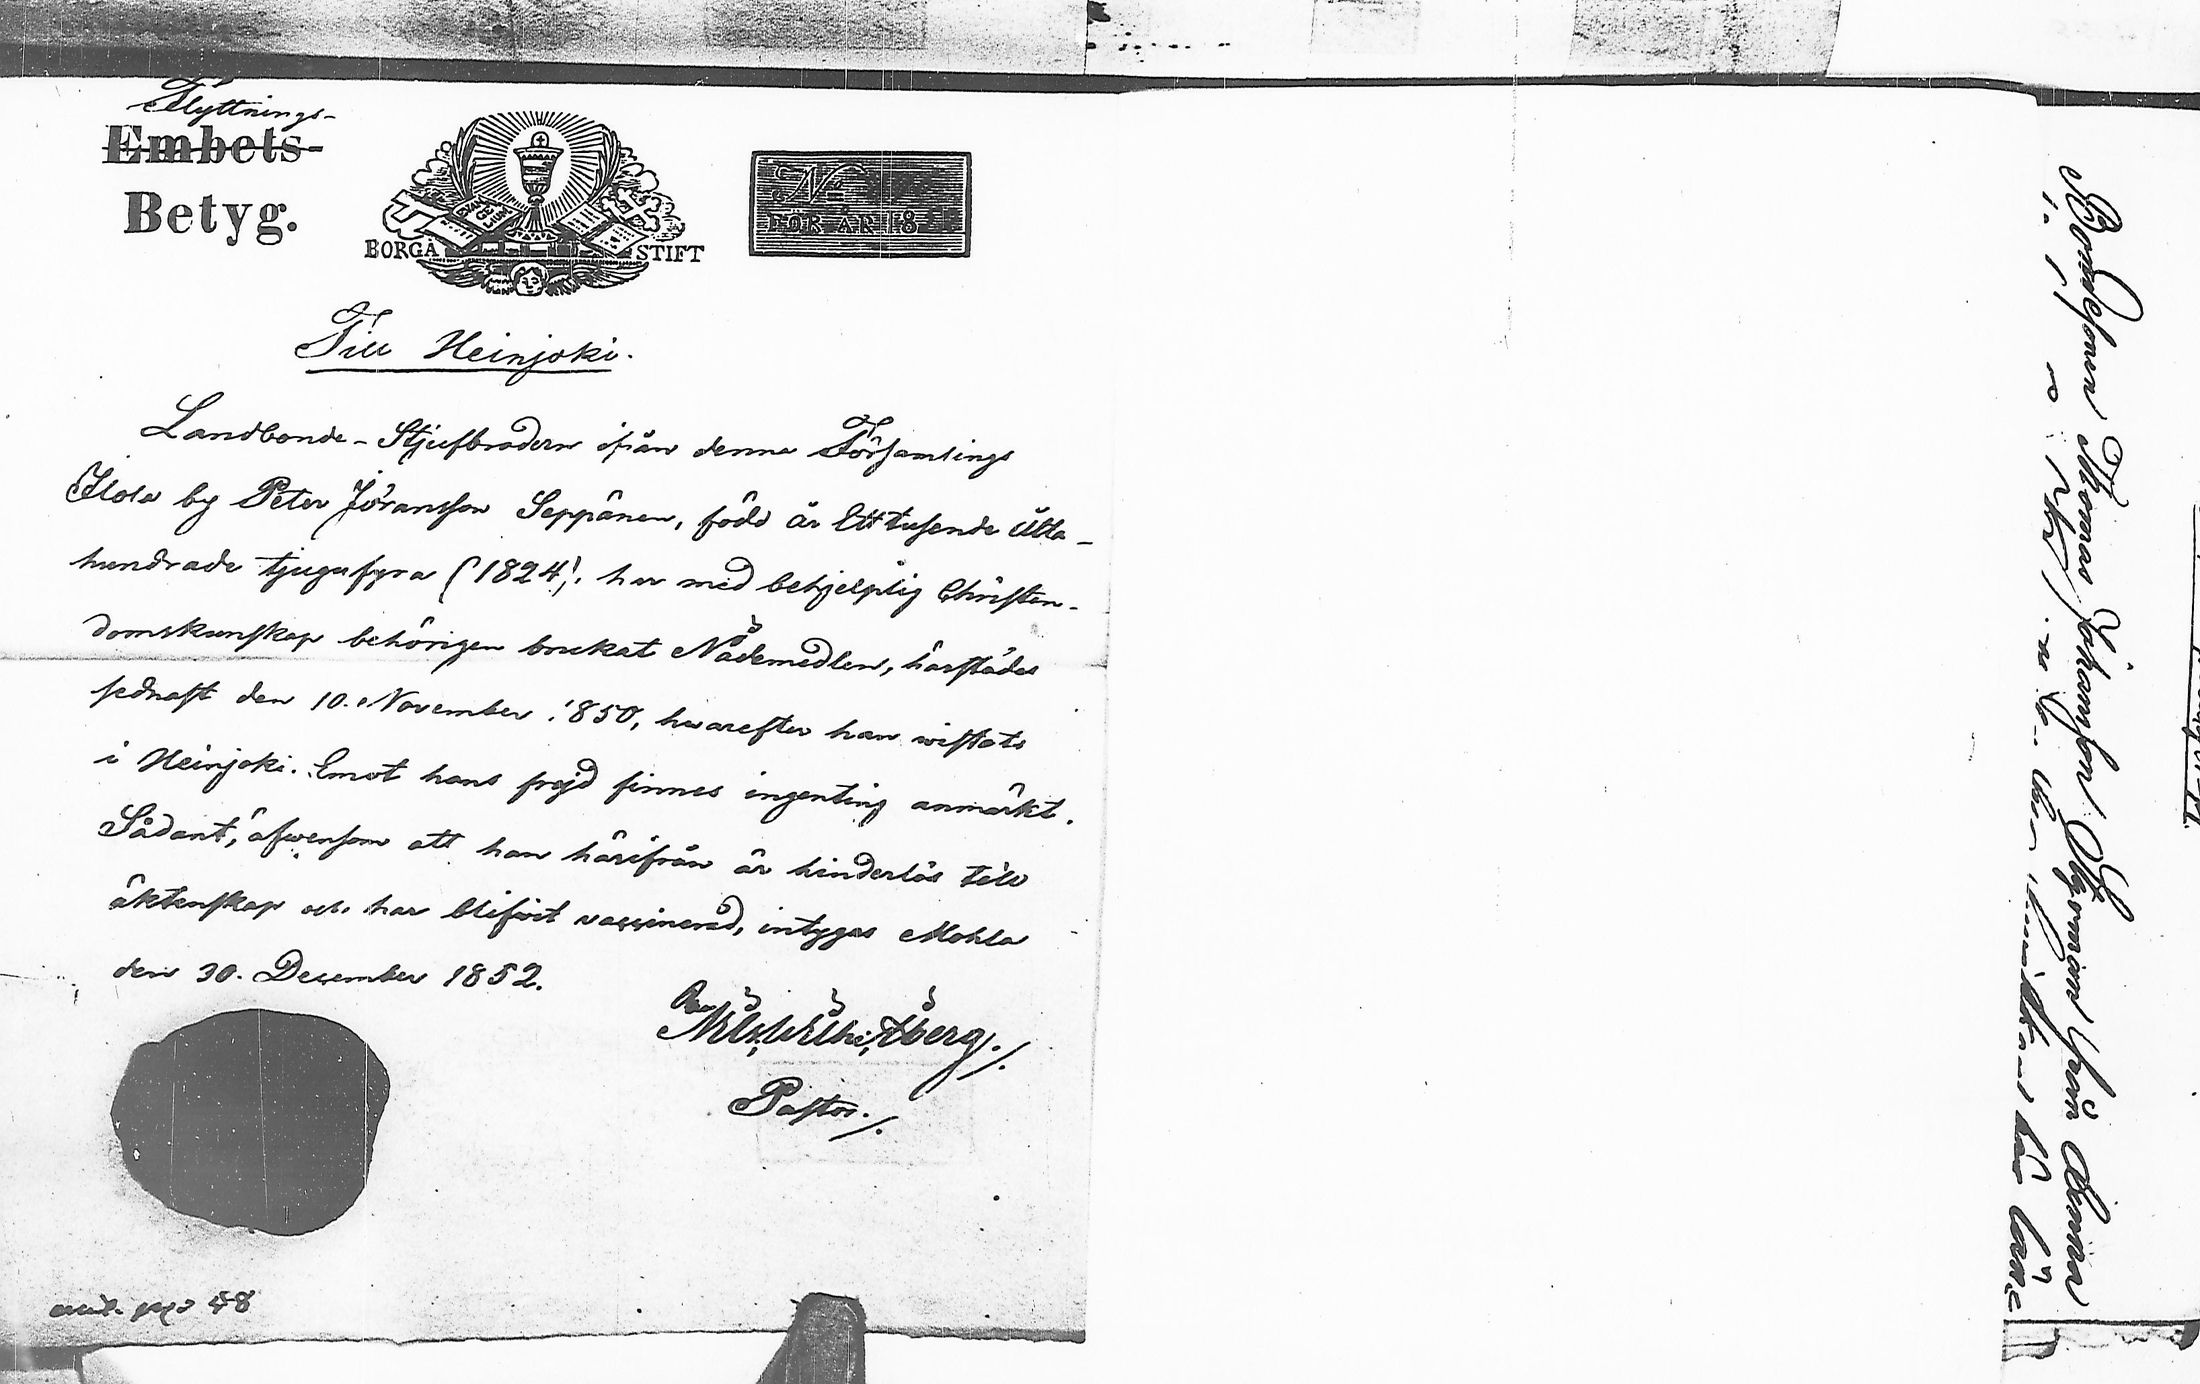 Flyttnings-
Embets-
Betyg.
EVAN
GE
LIUM
BORGÅ STIFT
N
FÖR ÅR 18
Till Heinjoki.
Landbonde-Stjufbrodern ifrån denna Församlings
Ilola by Peter Jöransson Seppänen, född år Ett tusende åtta-
hundrade tjugufyra (1824), har med behjelplig Christen-
domskunskap behörigen brukat Nådemedlen, härstädes
sednast den 10. November 1850, hvarefter han wistats
i Heinjoki. Emot hans frejd finnes ingenting anmärkt.
Sådant, äfwensom att han härifrån är hinderlös till
äktenskap och har blifvit vaccinerad, intygas Mohla
den 30. December 1852.
Nils Åberg./.
Pastor./.
48
Bondesonen Thomas Johansson ifrån denna